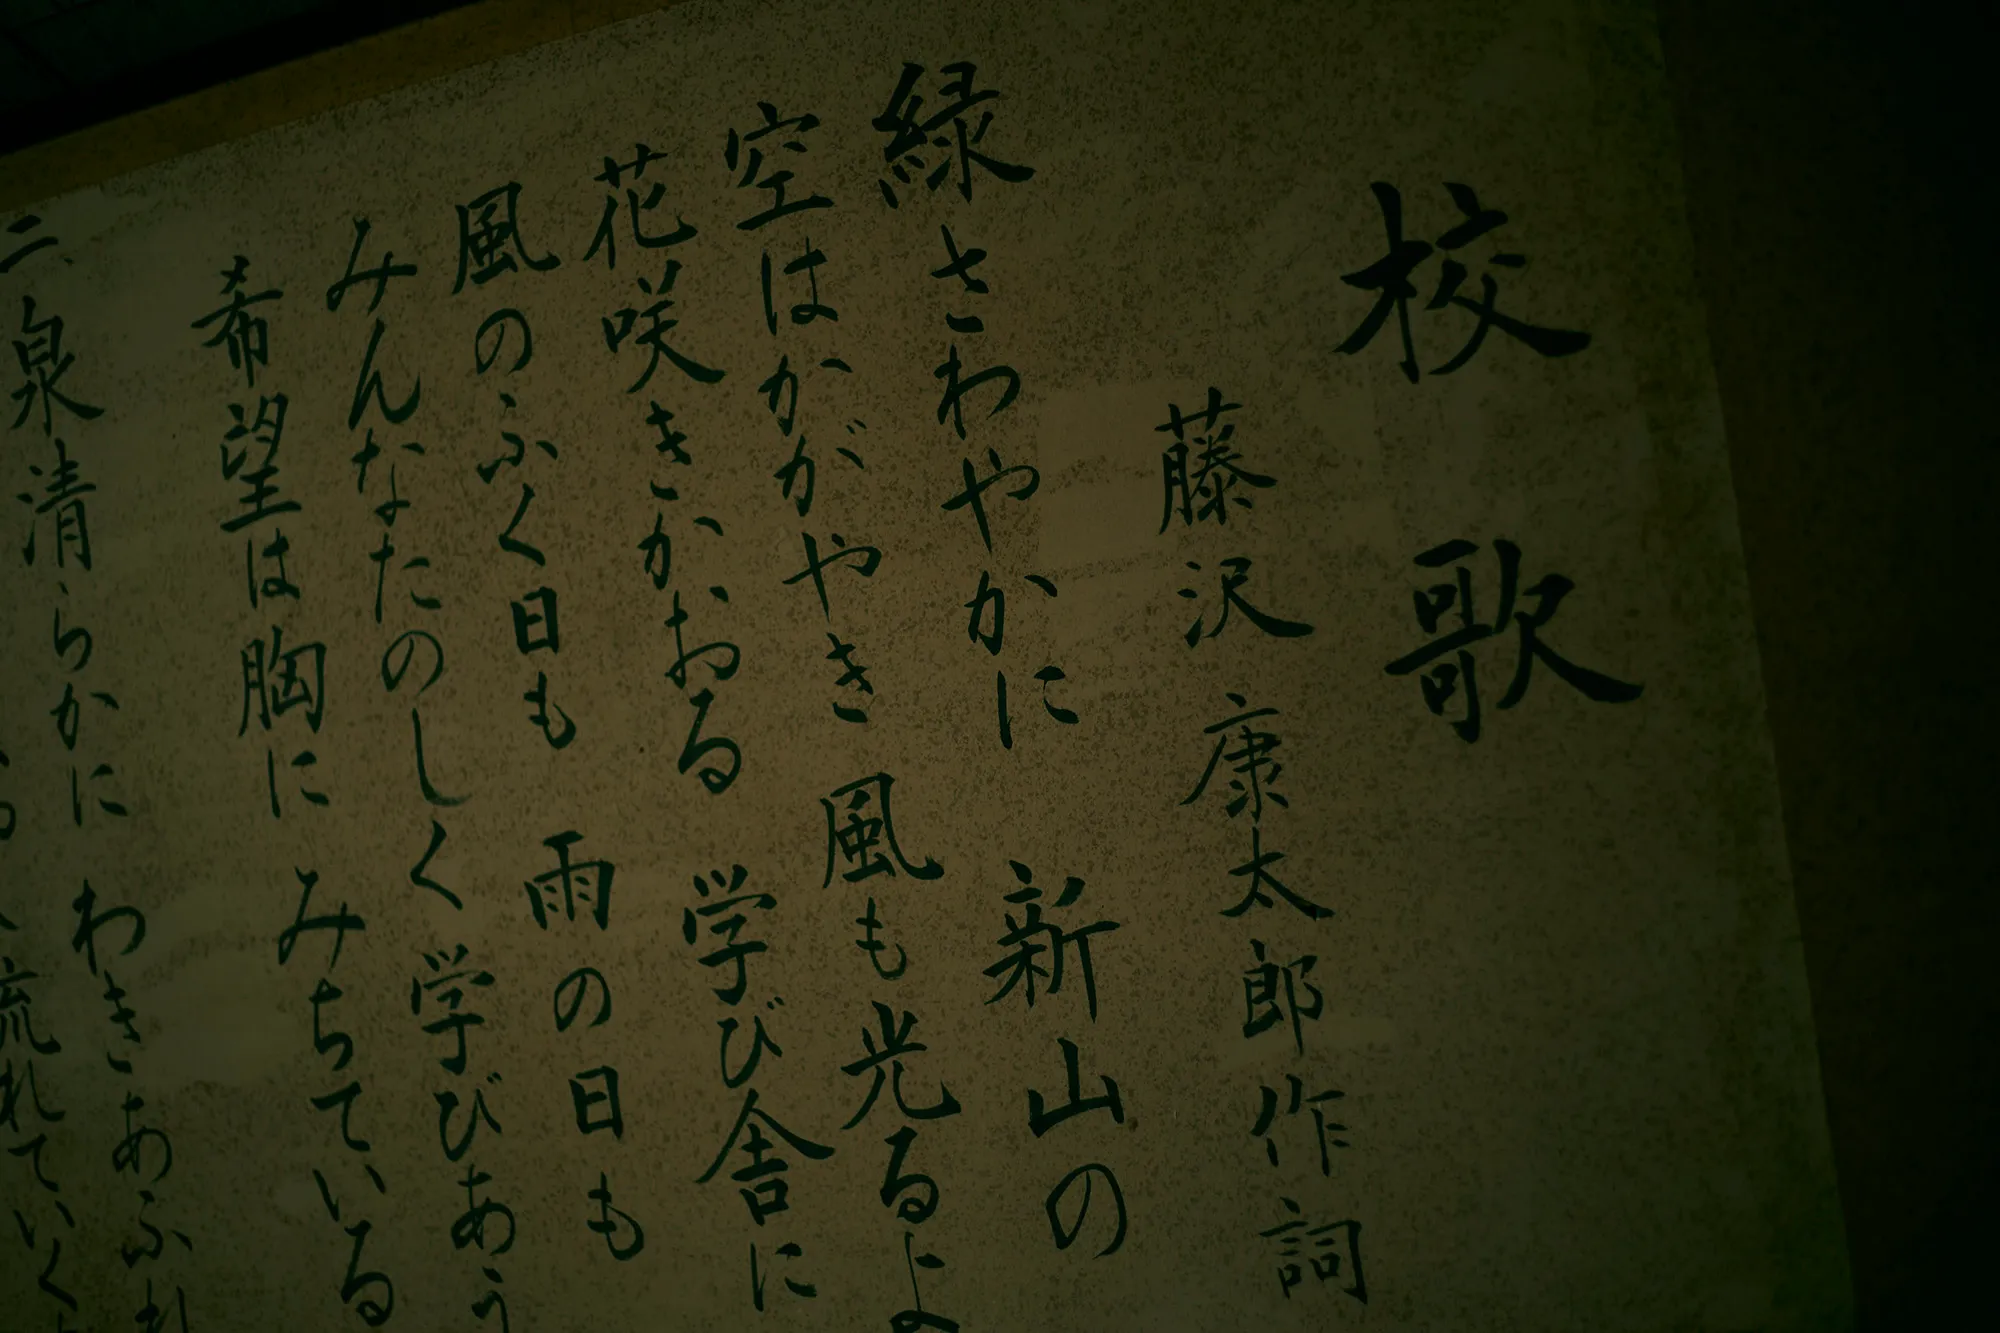 校歌
藤沢康太郎作詞
緑さわやかに 新山の
空はかがやき 風も光るよ
花咲きかおる 学び舎に
風のふく日も 雨の日も
みんなたのしく 学びあう
希望は胸に みちている
二、泉清らかに わきあふれ
流れていく